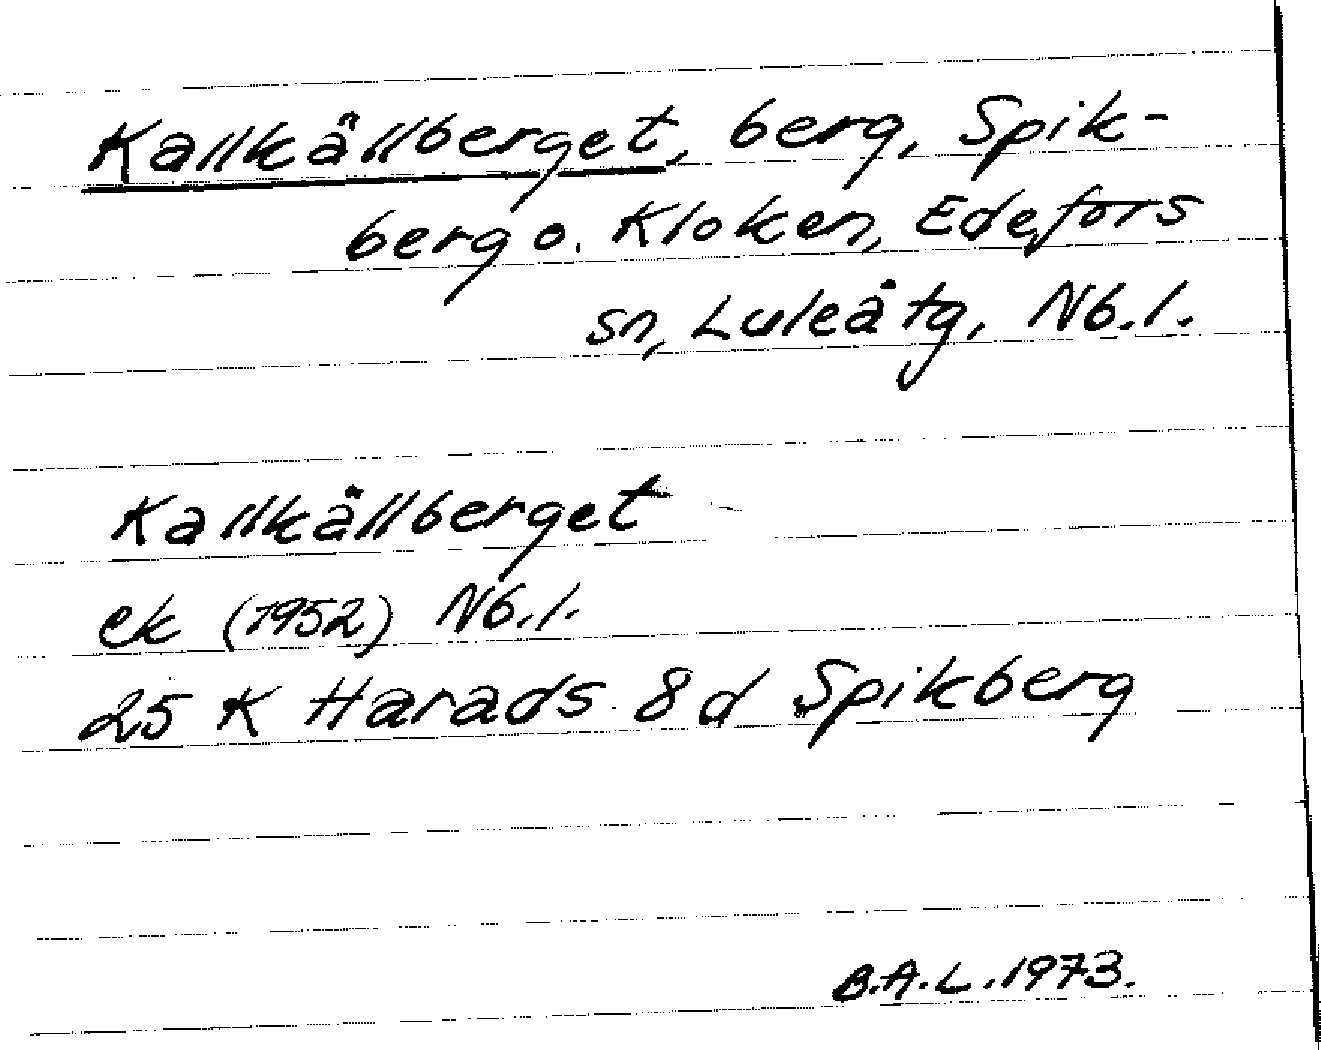 Kallkällberget, berg, Spik-
berg o. Kloken, Edefors
sn, Luleå tg, Nb. l.
Kallkällberget
ek (1952) Nb. l.
25 K Harads 8 d Spikberg
B.A.L. 1973.